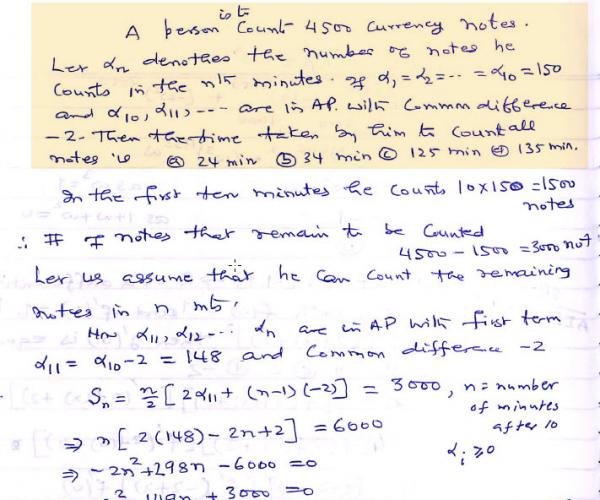 is to
A person Count 4500 Currency notes.
Let αn denothes the number of notes he
Counts in the nth minutes. If α₁ = α₂ = ... = α₁₀ = 150
and α₁₀, α₁₁, ... are in AP. with Common difference
-2. Then the time taken by him to Count all
notes is ⓐ 24 min ⓑ 34 min ⓒ 125 min ⓓ 135 min.
In the first ten minutes he counts 10 x 150 = 1500
notes
∴ # of notes that remain to be Counted
4500 - 1500 = 3000 not
Let us assume that he can count the remaining
notes in n mts.
α₁₁, α₁₂ ... αn are in AP with first term
α₁₁ = α₁₀ - 2 = 148 and Common difference -2
Sn = n/2 [2α₁₁ + (n-1)(-2)] = 3000, n = number
of minutes
after 10
⇒ n[2(148) - 2n + 2] = 6000
αi ≥ 0
⇒ -2n² + 298n - 6000 = 0
n² 149n + 3000 = 0